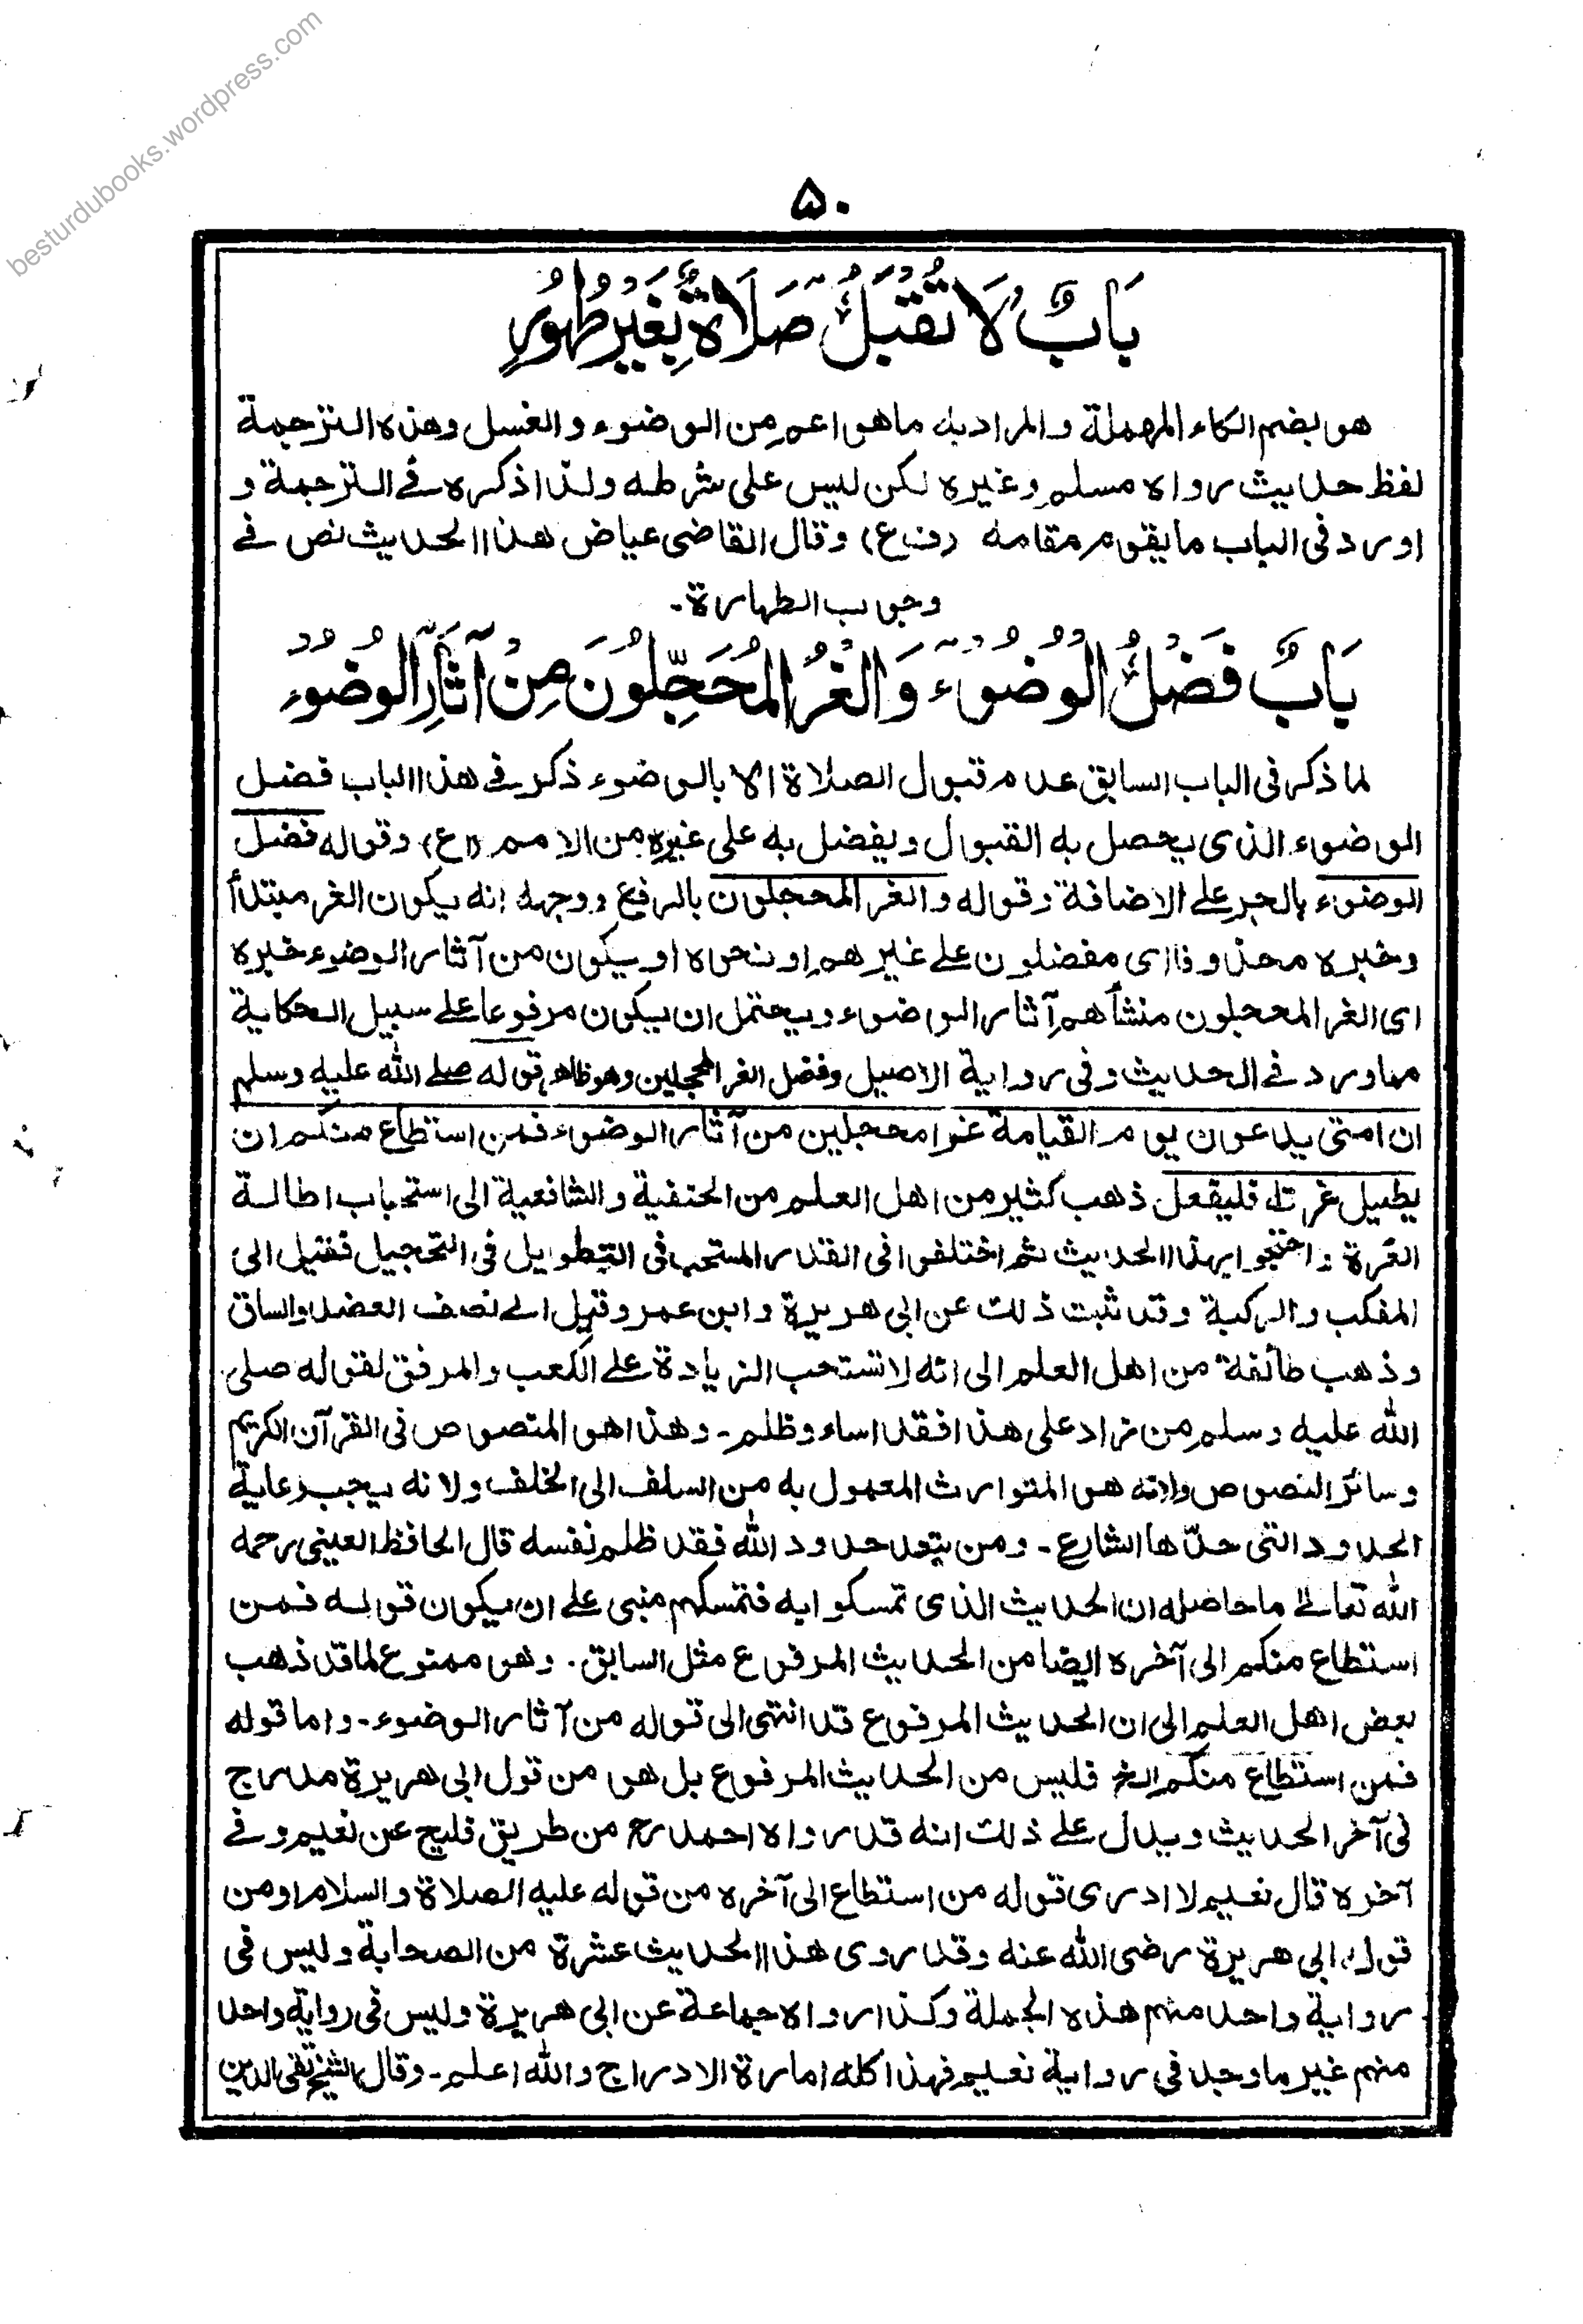 besturdubooks.wordpress.com
۵۰
بَابٌ لَا تُقْبَلُ صَلَاةٌ بِغَيْرِ طُهُورٍ
هو بضم الطاء المهملة والمراد به ماهو اعم من الوضوء والغسل وهذه الترجمة
لفظ حديث رواه مسلم وغيره لكن ليس على شرطه ولذا ذكره فے الترجمة و
اورد فى الباب ما يقوم مقامه (ف ع) وقال القاضى عياض هذا الحديث نص فے
وجوب الطهارة۔
بَابُ فَضْلُ الْوُضُوْءِ وَالْغُرُّ الْمُحَجَّلُونَ مِنْ آثَارِ الْوُضُوْءِ
لما ذكر فى الباب السابق عدم قبول الصلاة الا بالوضوء ذكر فے هذا الباب فضل
الوضوء الذى يحصل به القبول ويفضل به على غيره من الامم (ع) وقوله فضل
الوضوء بالجر علے الاضافة وقوله والغر المحجلون بالرفع ووجهه انه يكون الغر مبتدأ
وخبره محذوفا اى مفضلون علے غيرهم او نحوه او يكون من آثار الوضوء خبره
اى الغر المحجلون منشأهم آثار الوضوء ويحتمل ان يكون مرفوعا علے سبيل الحكاية
مما ورد فے الحديث وفى رواية الاصيل وفضل الغر المحجلين وهو ظاهر قوله صلے الله عليه وسلم
ان امتى يدعون يوم القيامة غرا محجلين من آثار الوضوء فمن استطاع منكم ان
يطيل غرته فليفعل ذهب كثير من اهل العلم من الحنفية والشافعية الى استحباب اطالة
الغرة واحتجوا بهذا الحديث ثم اختلفوا فى القدر المستحب فى التطويل فى التحجيل فقيل الى
المنكب والركبة وقد ثبت ذلك عن ابى هريرة وابن عمر وقيل الے نصف العضد والساق
وذهب طائفة من اهل العلم الى انه لا تستحب الزيادة علے الكعب والمرفق لقوله صلى
الله عليه وسلم من زاد على هذا فقد اساء وظلم۔ وهذا هو المنصوص فى القرآن الكريم
وسائر النصوص ولانه هو المتوارث المعمول به من السلف الى الخلف ولانه يجب رعاية
الحدود التى حدّها الشارع۔ ومن يتعد حدود الله فقد ظلم نفسه قال الحافظ العينى رحمه
الله تعالے ما حاصله ان الحديث الذى تمسكوا به فتمسكهم مبنى علے ان يكون قوله فمن
استطاع منكم الى آخره ايضا من الحديث المرفوع مثل السابق۔ وهو ممنوع لما قد ذهب
بعض اهل العلم الى ان الحديث المرفوع قد انتهى الى قوله من آثار الوضوء۔ واما قوله
فمن استطاع منكم الخ فليس من الحديث المرفوع بل هو من قول ابى هريرة مدرج
فى آخر الحديث ويدل علے ذلك انه قد رواه احمد رح من طريق فليح عن نعيم وفے
آخره قال نعيم لا ادرى قوله من استطاع الى آخره من قوله عليه الصلاة والسلام او من
قول ابى هريرة رضى الله عنه وقد روى هذا الحديث عشرة من الصحابة وليس فى
رواية واحد منهم هذه الجملة وكذا رواه جماعة عن ابى هريرة وليس فى رواية واحد
منهم غير ما وجد فى رواية نعيم فهذا كله امارة الادراج والله اعلم۔ وقال الشيخ تقى الدين